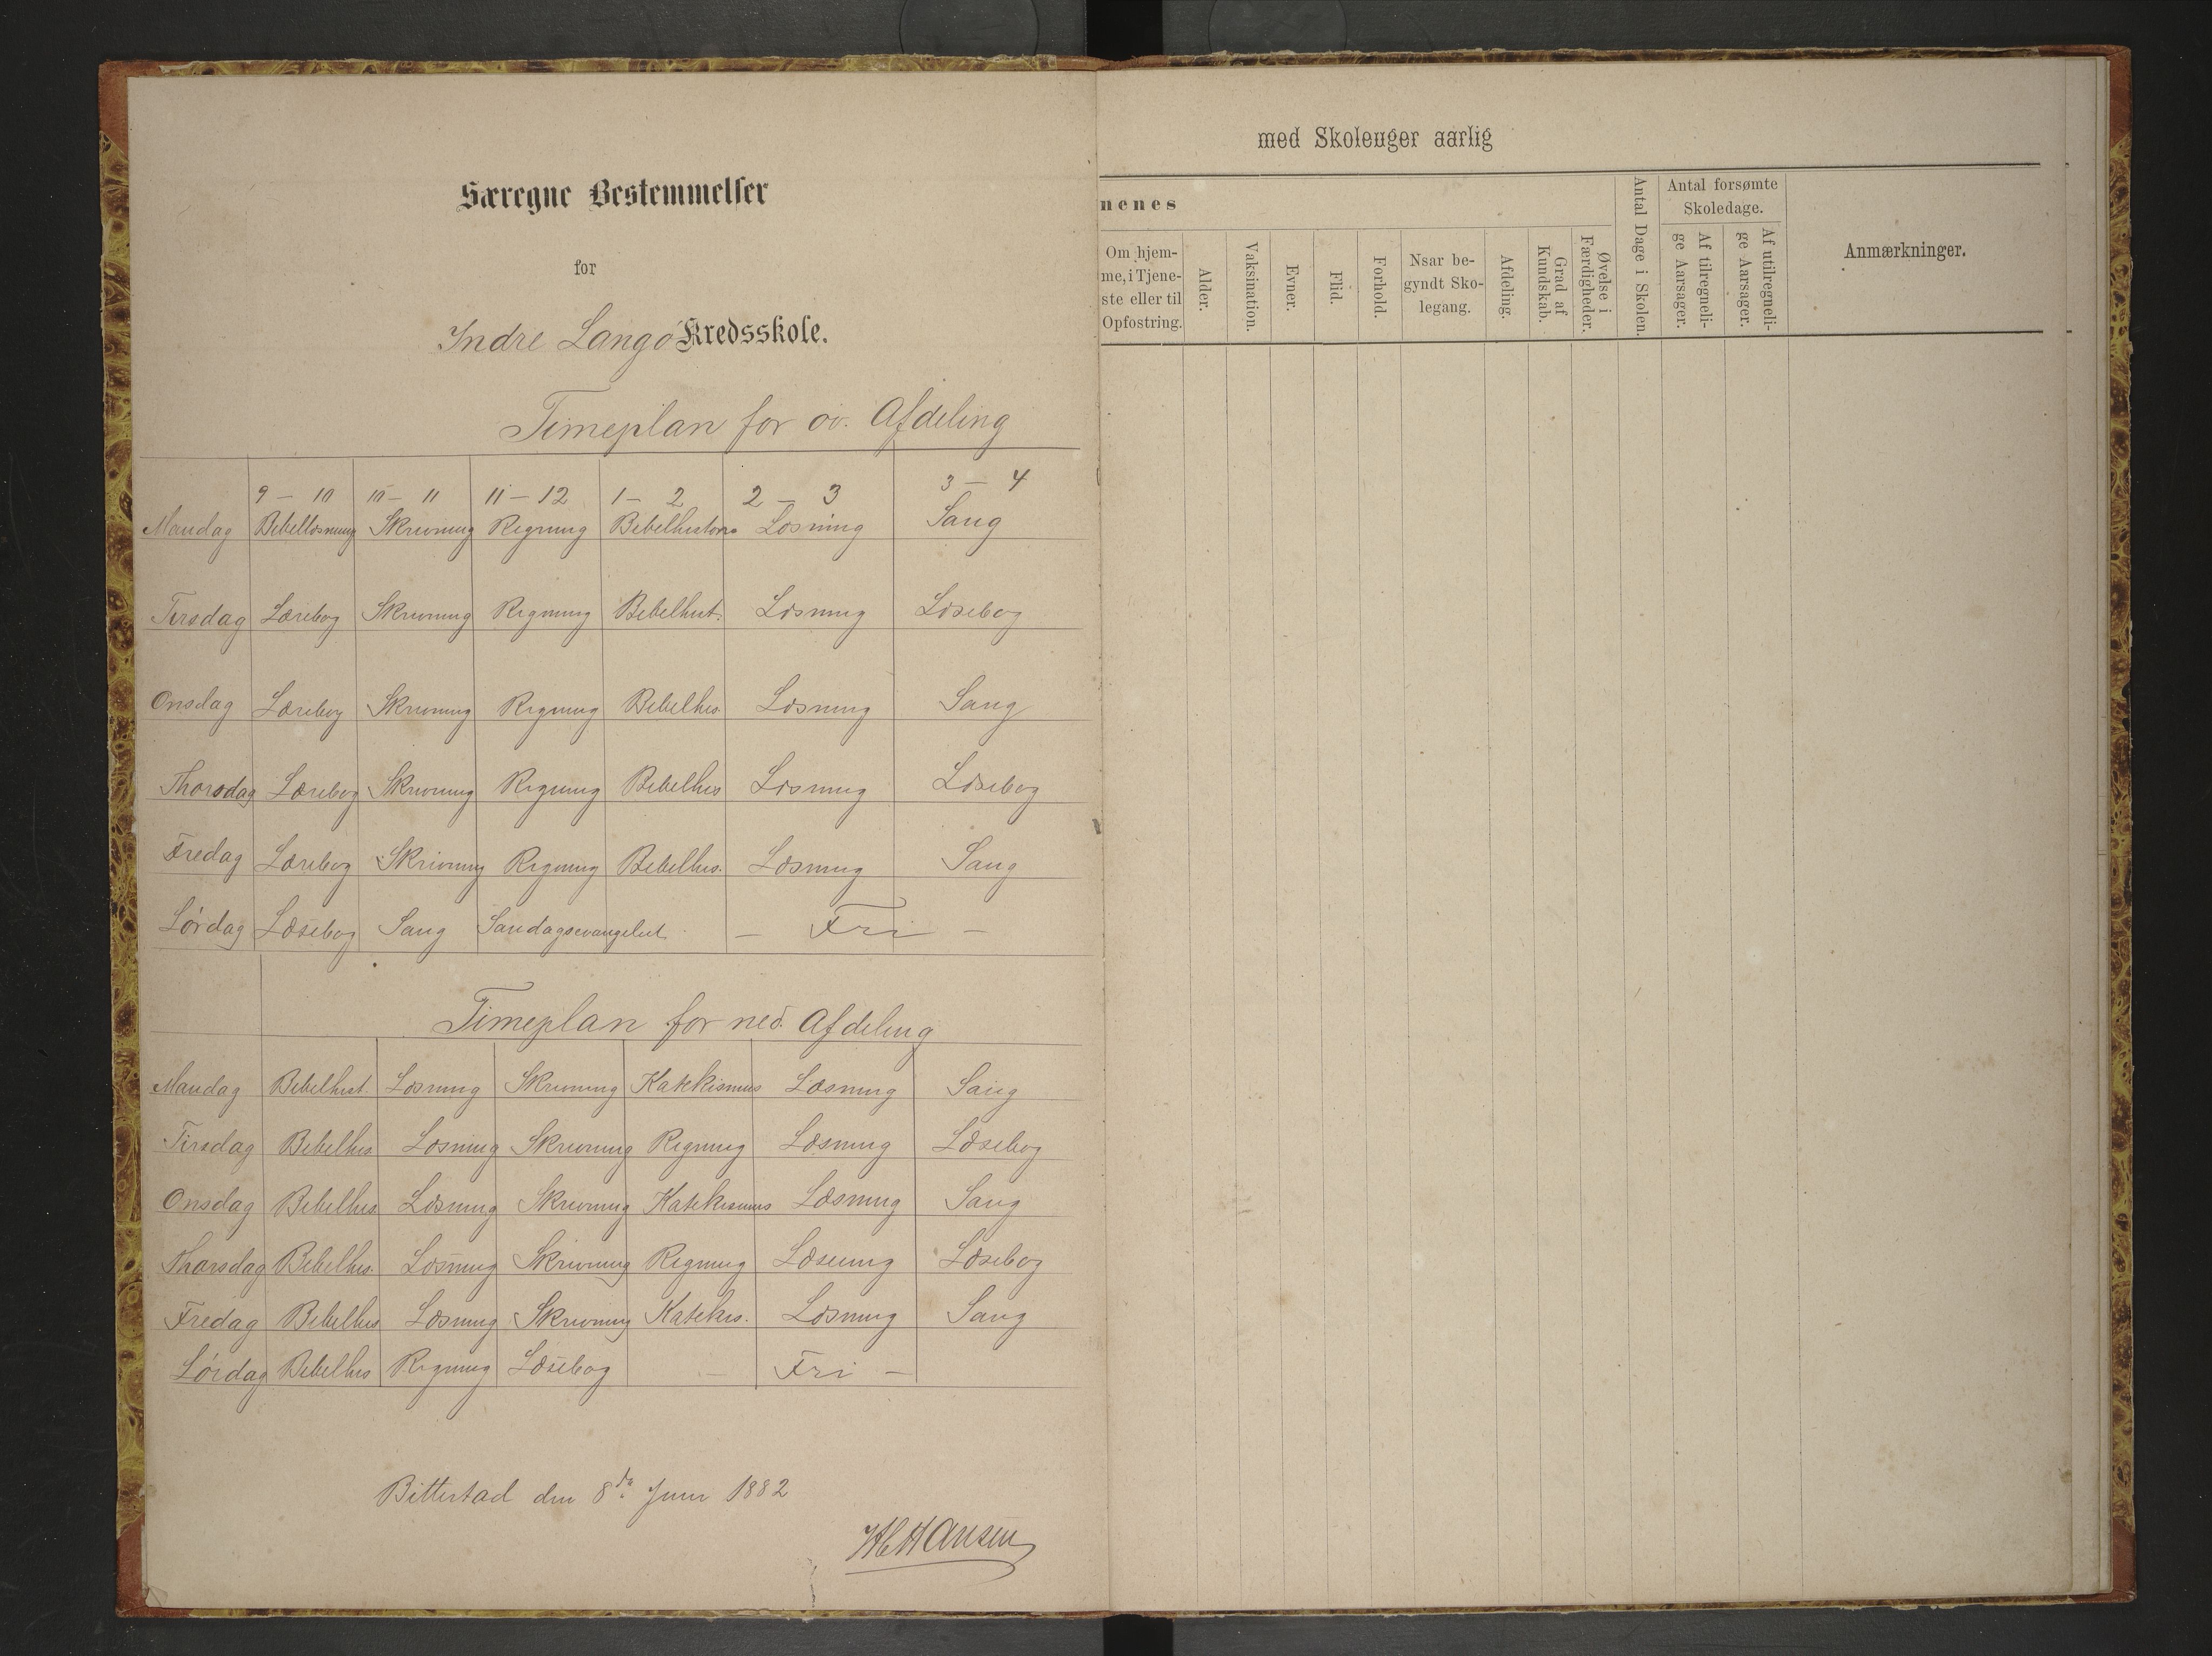 Særegne Bestemmelser
for
Indre Langø Kredsskole.
Timeplan for øv. Afdeling
9 – 10 10 – 11 11 – 12 1 – 2 2 – 3 3 – 4
Mandag Bebellæsning Skrivning Regning Bebelhistorie Læsning Sang
Tirsdag Lærebog Skrivning Regning Bebelhist. Læsning Læsebog
Onsdag Lærebog Skrivning Regning Bebelhis. Læsning Sang
Thorsdag Lærebog Skrivning Regning Bebelhis Læsning Læsebog
Fredag Lærebog Skrivning Regning Bebelhis. Læsning Sang
Lørdag Læsebog Sang Søndagsevangeliet – Fri –
Timeplan for ned. Afdeling
Mandag Bebelhist. Læsning Skrivning Katekismus Læsning Sang
Tirsdag Bebelhis. Læsning Skrivning Regning Læsning Læsebog
Onsdag Bebelhis. Læsning Skrivning Katekismus Læsning Sang
Thorsdag Bebelhis. Læsning Skrivning Regning Læsning Læsebog
Fredag Bebelhis Læsning Skrivning Katekis. Læsning Sang
Lørdag Bebelhis Regning Læsebog – Fri –
Bitterstad den 8de Juni 1882
H C Hansen
med Skoleuger aarlig
nenes
Om hjem-
me, i Tjene-
ste eller til
Opfostring.
Alder.
Vaksination.
Evner.
Flid.
Forhold.
Nsar be-
gyndt Sko-
legang.
Afdeling.
Grad af
Kundskab.
Øvelse i
Færdigheder.
Antal Dage i Skolen.
Antal forsømte
Skoledage.
Af tilregneli-
ge Aarsager.
Af utilregneli-
ge Aarsager.
Anmærkninger.